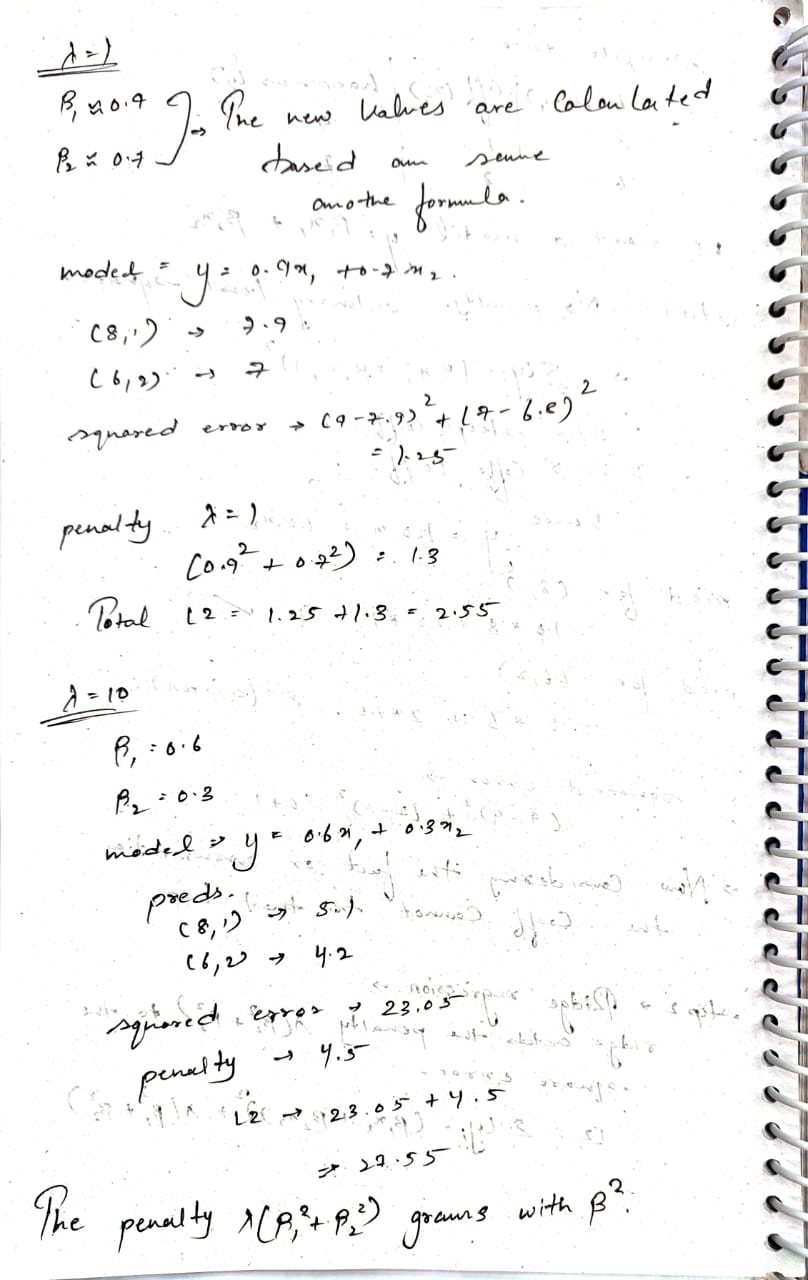 λ=1
β₁ ≈ 0.9
β₂ ≈ 0.7 } → The new values are calculated
based on some
another formula.
model = y = 0.9x₁ + 0.7x₂.
(8,1) → 7.9
(6,2) → 7
squared error → (9-7.9)² + (7-6.8)²
= 1.25
penalty λ=1
(0.9² + 0.7²) = 1.3
Total L2 = 1.25 + 1.3 = 2.55
λ=10
β₁ = 0.6
β₂ = 0.3
model → y = 0.6x₁ + 0.3x₂
preds.
(8,1) → 5.1
(6,2) → 4.2
squared error → 23.05
penalty → 4.5
L2 → 23.05 + 4.5
⇒ 27.55
The penalty λ(β₁² + β₂²) grows with β².